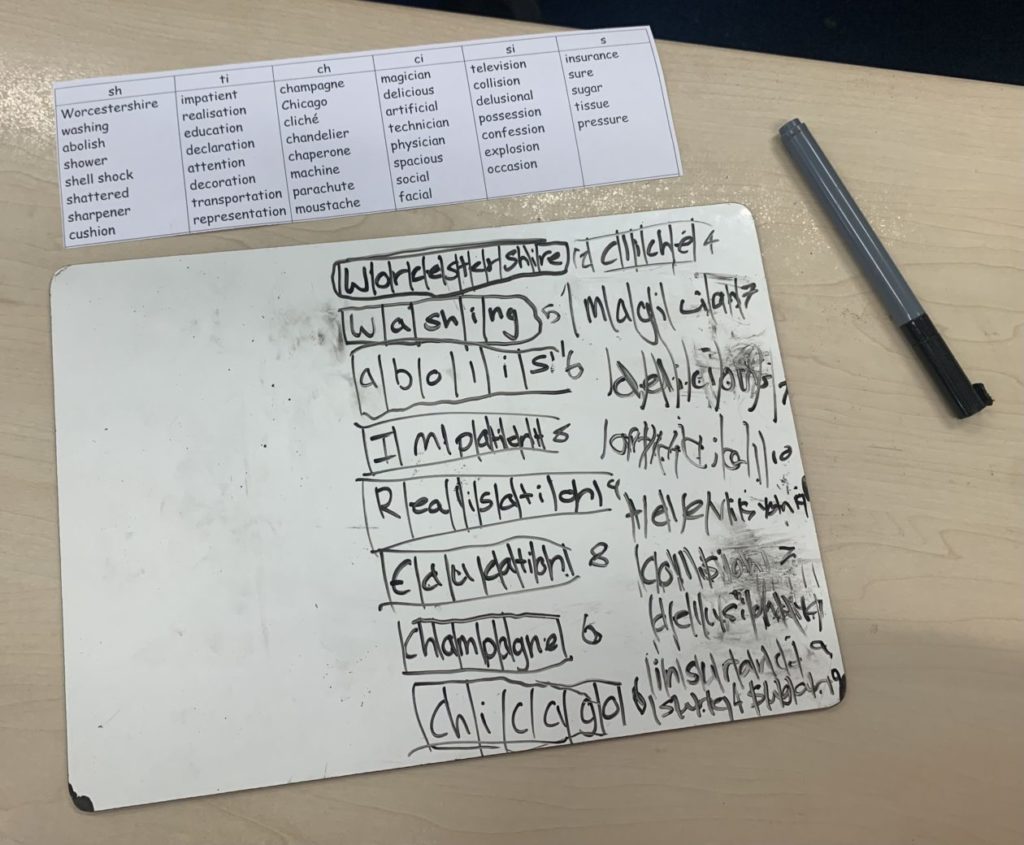 sh ti ch ci si s
Worcestershire impatient champagne magician television insurance
washing realisation Chicago delicious collision sure
abolish education cliché artificial delusional sugar
shower declaration chandelier technician possession tissue
shell shock attention chaperone physician confession pressure
shattered decoration machine spacious explosion
sharpener transportation parachute social occasion
cushion representation moustache facial
Worcestershire cliché 4
washing 5 magician 7
abolis 6 delicious 7
Impatient 8
Realisation 9
Education 8 collision 7
champagne 6
chicago 6